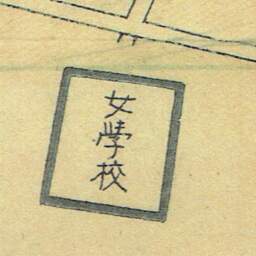 女學校